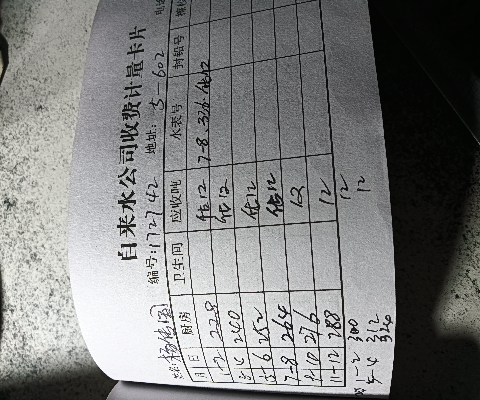 自来水公司收费计量卡片
编号:172742 地址: 5-602
厨房 卫生间 应收吨 水表号 封铅号
月 日
1-2 228 估12 7-8.336.估12
3-4 240 估12
5-6 252 估12
7-8 264 估12
9-10 276 12
11-12 288 12
1-2 300 12
3-4 312 12
324